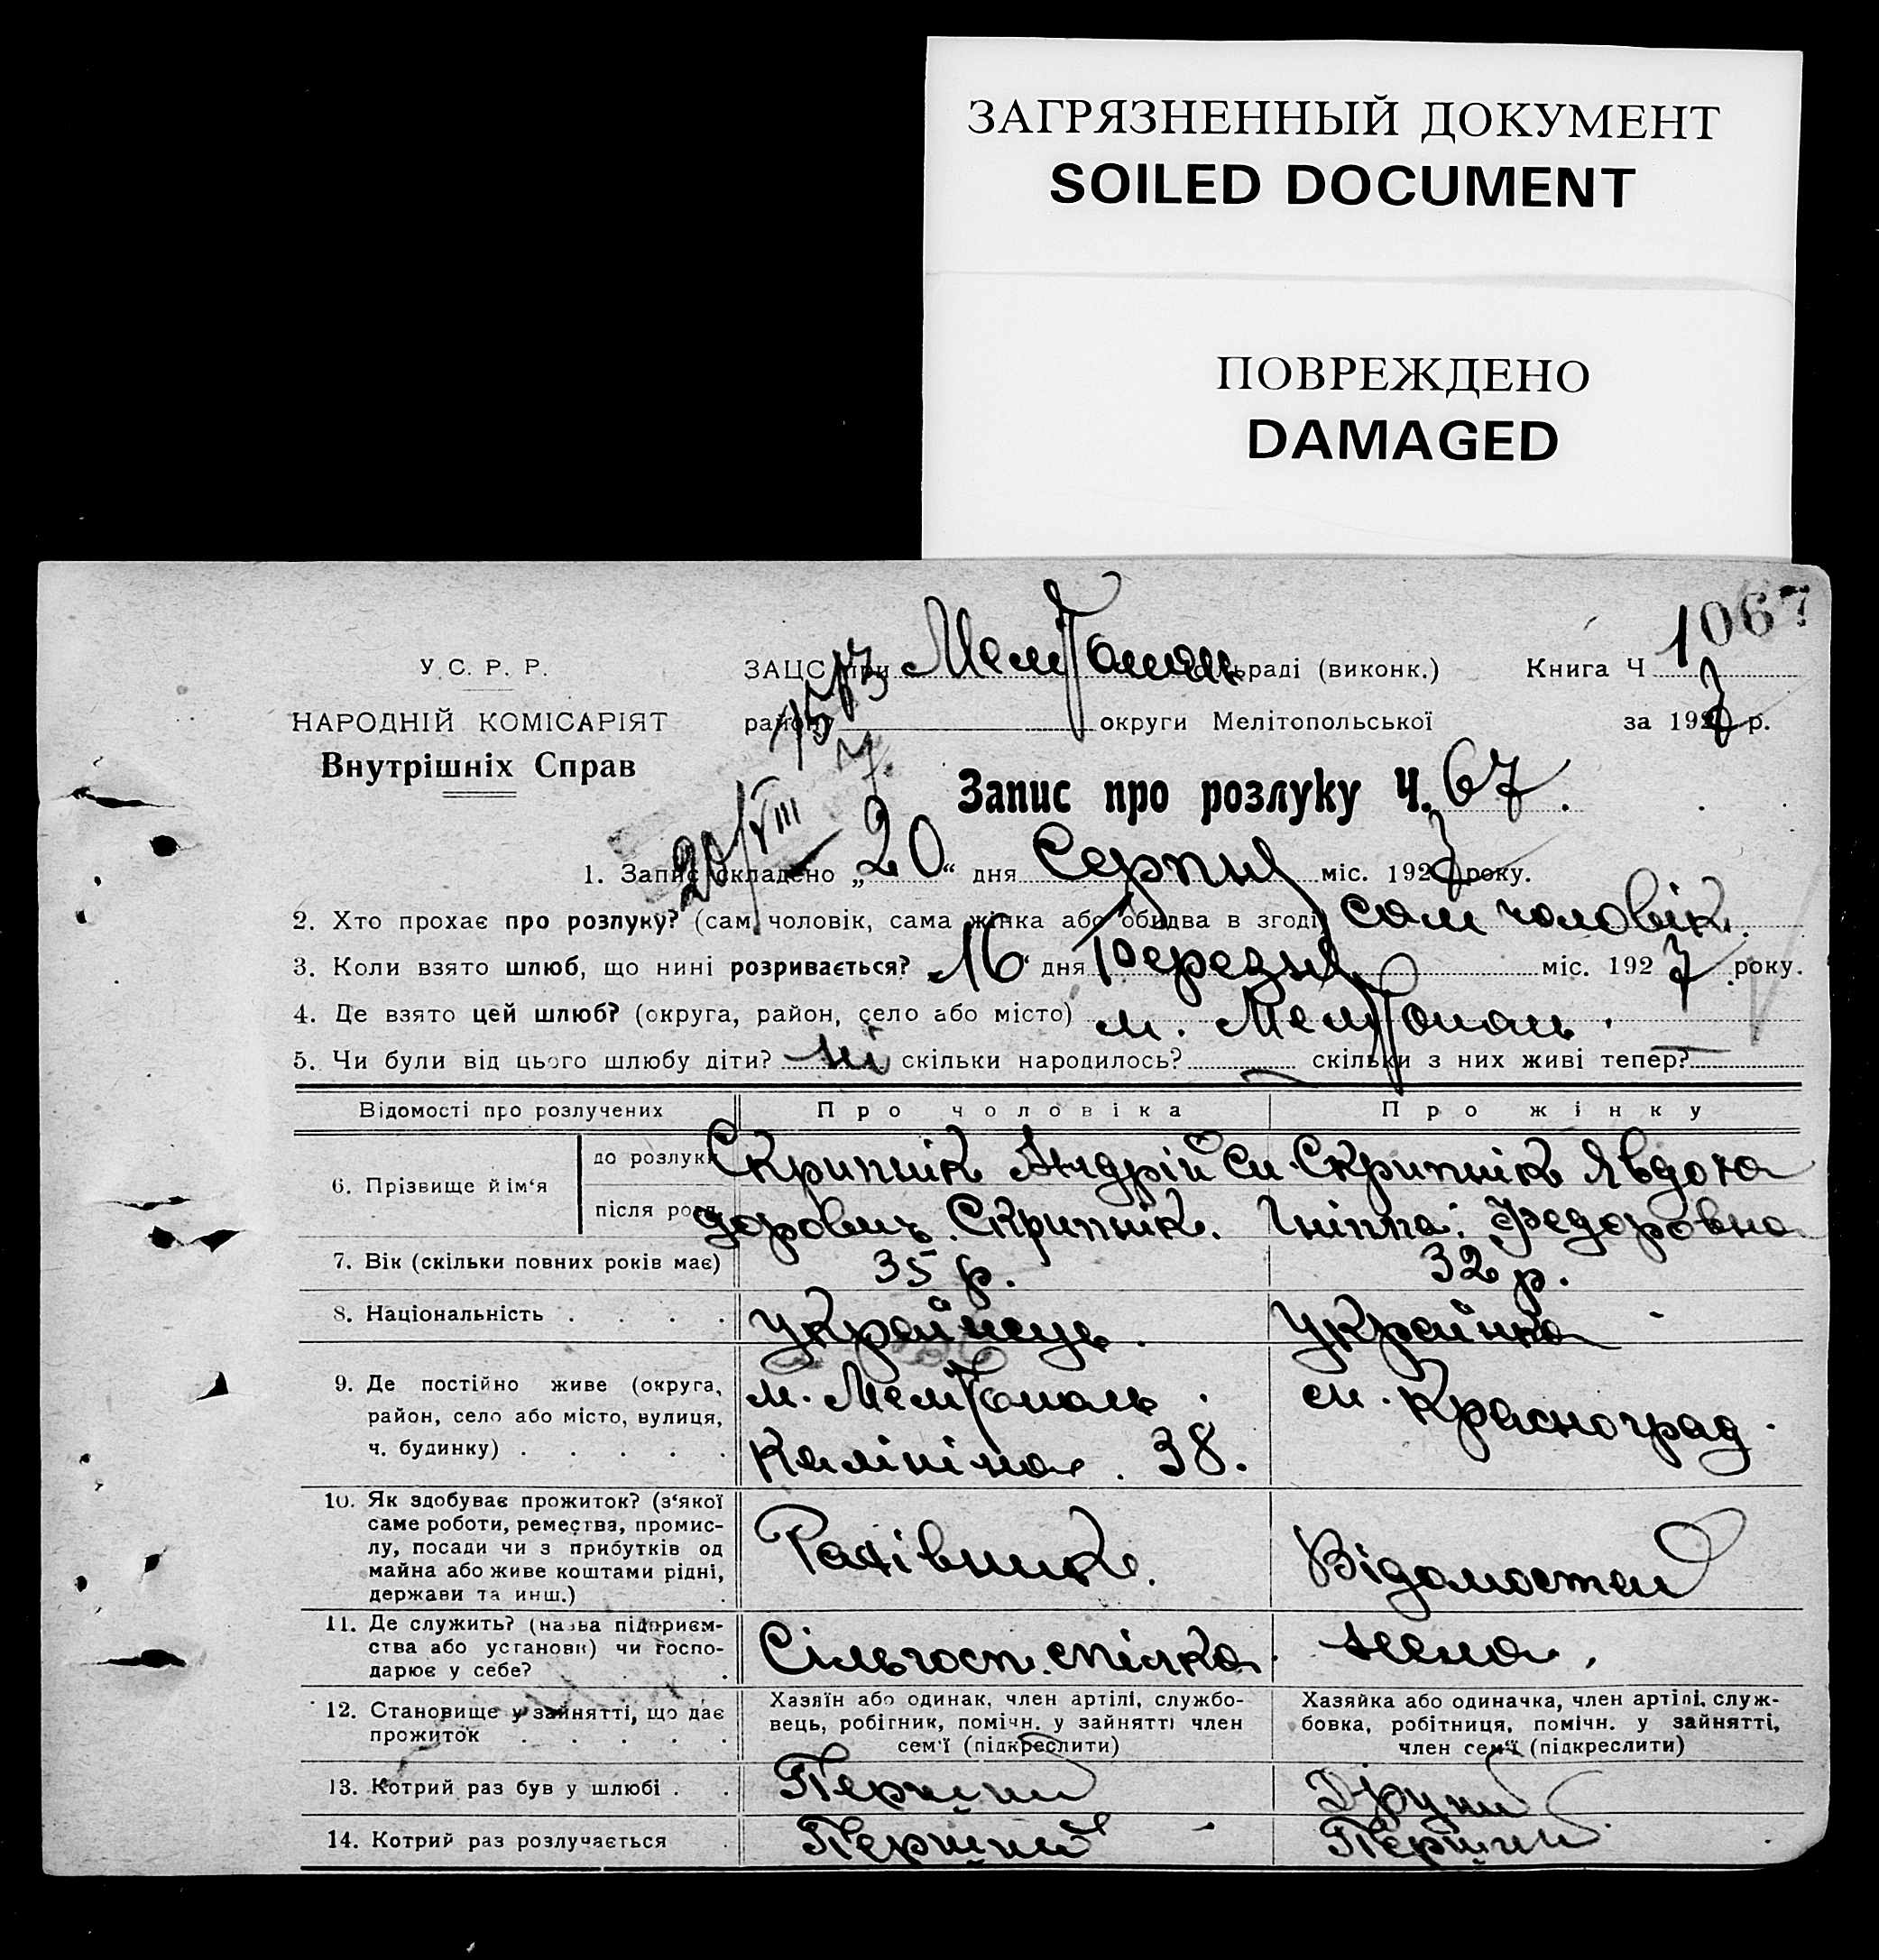 ЗАГРЯЗНЕННЫЙ ДОКУМЕНТ
SOILED DOCUMENT
ПОВРЕЖДЕНО
DAMAGED
1067
У.С.Р.Р.
НАРОДНІЙ КОМІСАРІЯТ
Внутрішніх Справ
ЗАЦС при Мелітополь сільраді (виконк.) Книга Ч
району округи Мелітопольської за 1927 р.
20/VIII
Запис про розлуку Ч. 67.
1. Запис складено „20“ дня Серпня міс. 1927 року.
2. Хто прохає про розлуку? (сам чоловік, сама жінка або обидва в згоді) сам чоловік.
3. Коли взято шлюб, що нині розривається? 16 дня Березня міс. 1927 року.
4. Де взято цей шлюб? (округа, район, село або місто) м. Мелітополь.
5. Чи були від цього шлюбу діти? ні скільки народилось? — скільки з них живі тепер? —
Відомості про розлучених Про чоловіка Про жінку
6. Прізвище й ім‘я
до розлуки Скрипнік Андрій Си- Скрипнік Явдоха
після розл. дорович. Скрипнік. Гніппа: Федоровна
7. Вік (скільки повних років має) 35 р. 32 р.
8. Національність . . . . українець. українка
9. Де постійно живе (округа, район, село або місто, вулиця, ч. будинку) . . . . .
м. Мелітополь.
Калініна. 38.
м. Красноград.
10. Як здобуває прожиток? (з‘якої саме роботи, ремества, промислу, посади чи з прибутків од майна або живе коштами рідні, держави та инш.)
Відомостей
11. Де служить? (назва підприємства або установи) чи господарює у себе?
Сільгосп. спілка.
нема.
12. Становище у зайнятті, що дає прожиток . . . . .
Хазяїн або одинак, член артілі, службовець, робітник, помічн. у зайнятті член сем‘ї (підкреслити)
Хазяйка або одиначка, член артілі, службовка, робітниця, помічн. у зайнятті, член сем‘ї (підкреслити)
13. Котрий раз був у шлюбі . . Перший Другий
14. Котрий раз розлучається . Перший Перший